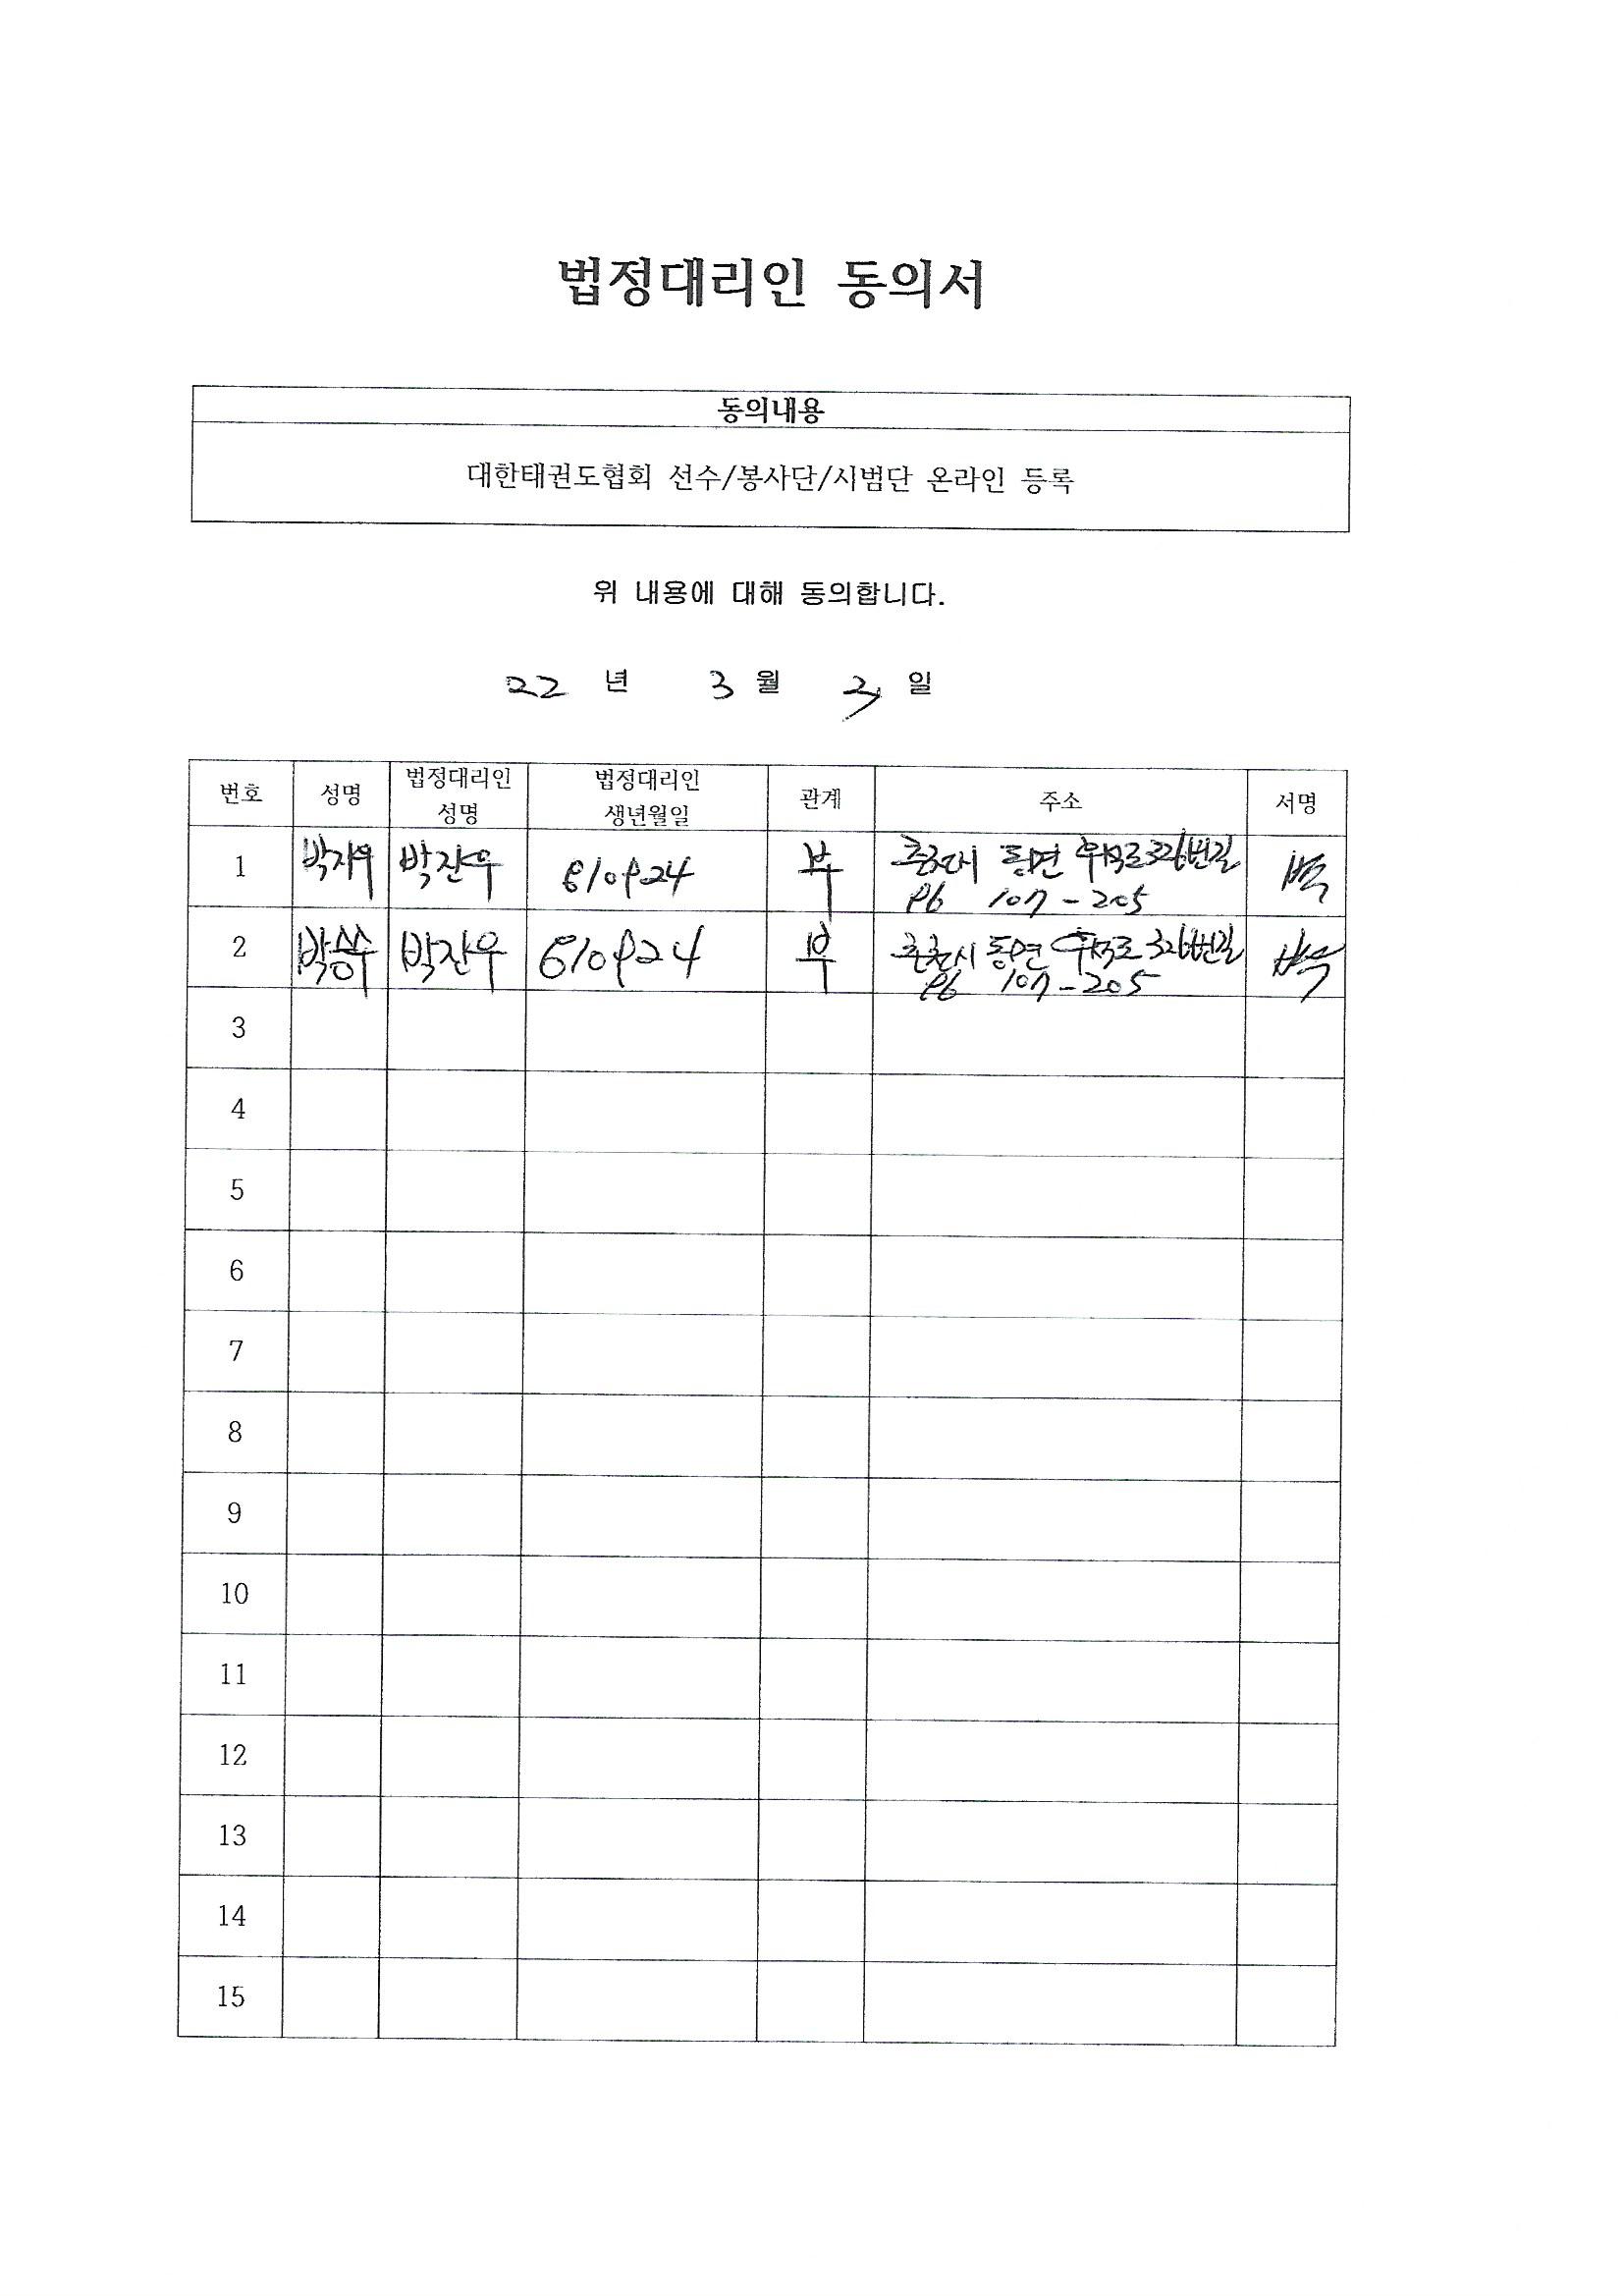 법정대리인 동의서
동의내용
대한태권도협회 선수/봉사단/시범단 온라인 등록
위 내용에 대해 동의합니다.
22 년 3 월 일
번호 성명 법정대리인 성명 법정대리인 생년월일 관계 주소 서명
1 박지우 박찬우 810924 부 춘천시 동면 326번길
107-205
2 박승수 박찬우 810924 부 춘천시 동면 326번길
107-205
3
4
5
6
7
8
9
10
11
12
13
14
15